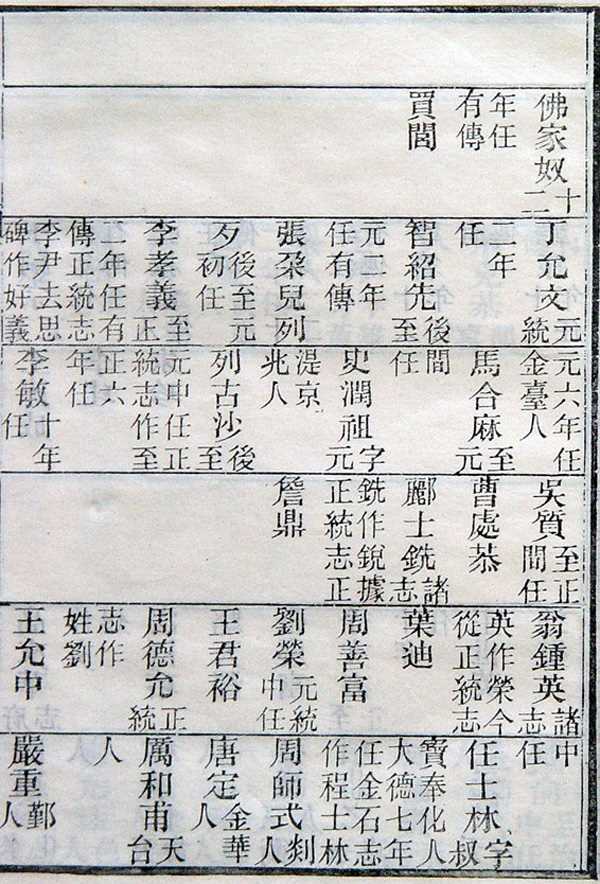 佛家奴十二
年任
有傳
買閭
丁允文元統
二年
任
智紹先後至
元二年
任有傳
張朶兒列
歹後至元
初任
李孝義至正
二年任有
傳正統志
李尹去思
碑作好義
元六年任
金臺人
馬合麻至元
間
任
史潤祖字元
湜京
兆人
列古沙後至
元中任正
統志作至
正六
年任
李敏十年任
吳質至正間任
曹處恭
酈士銑諸志
銑作銳據
正統志正
詹鼎
翁鍾英諸志
英作榮今
從正統志
葉迪
周善富
劉榮元統中任
王君裕
周德允正統
志作
姓劉
王允中
中
任
任士林字叔
寳奉化人
大德七年
任金石志
作程士林
周師式剡人
唐定金華人
厲和甫天台
人
嚴重鄞人